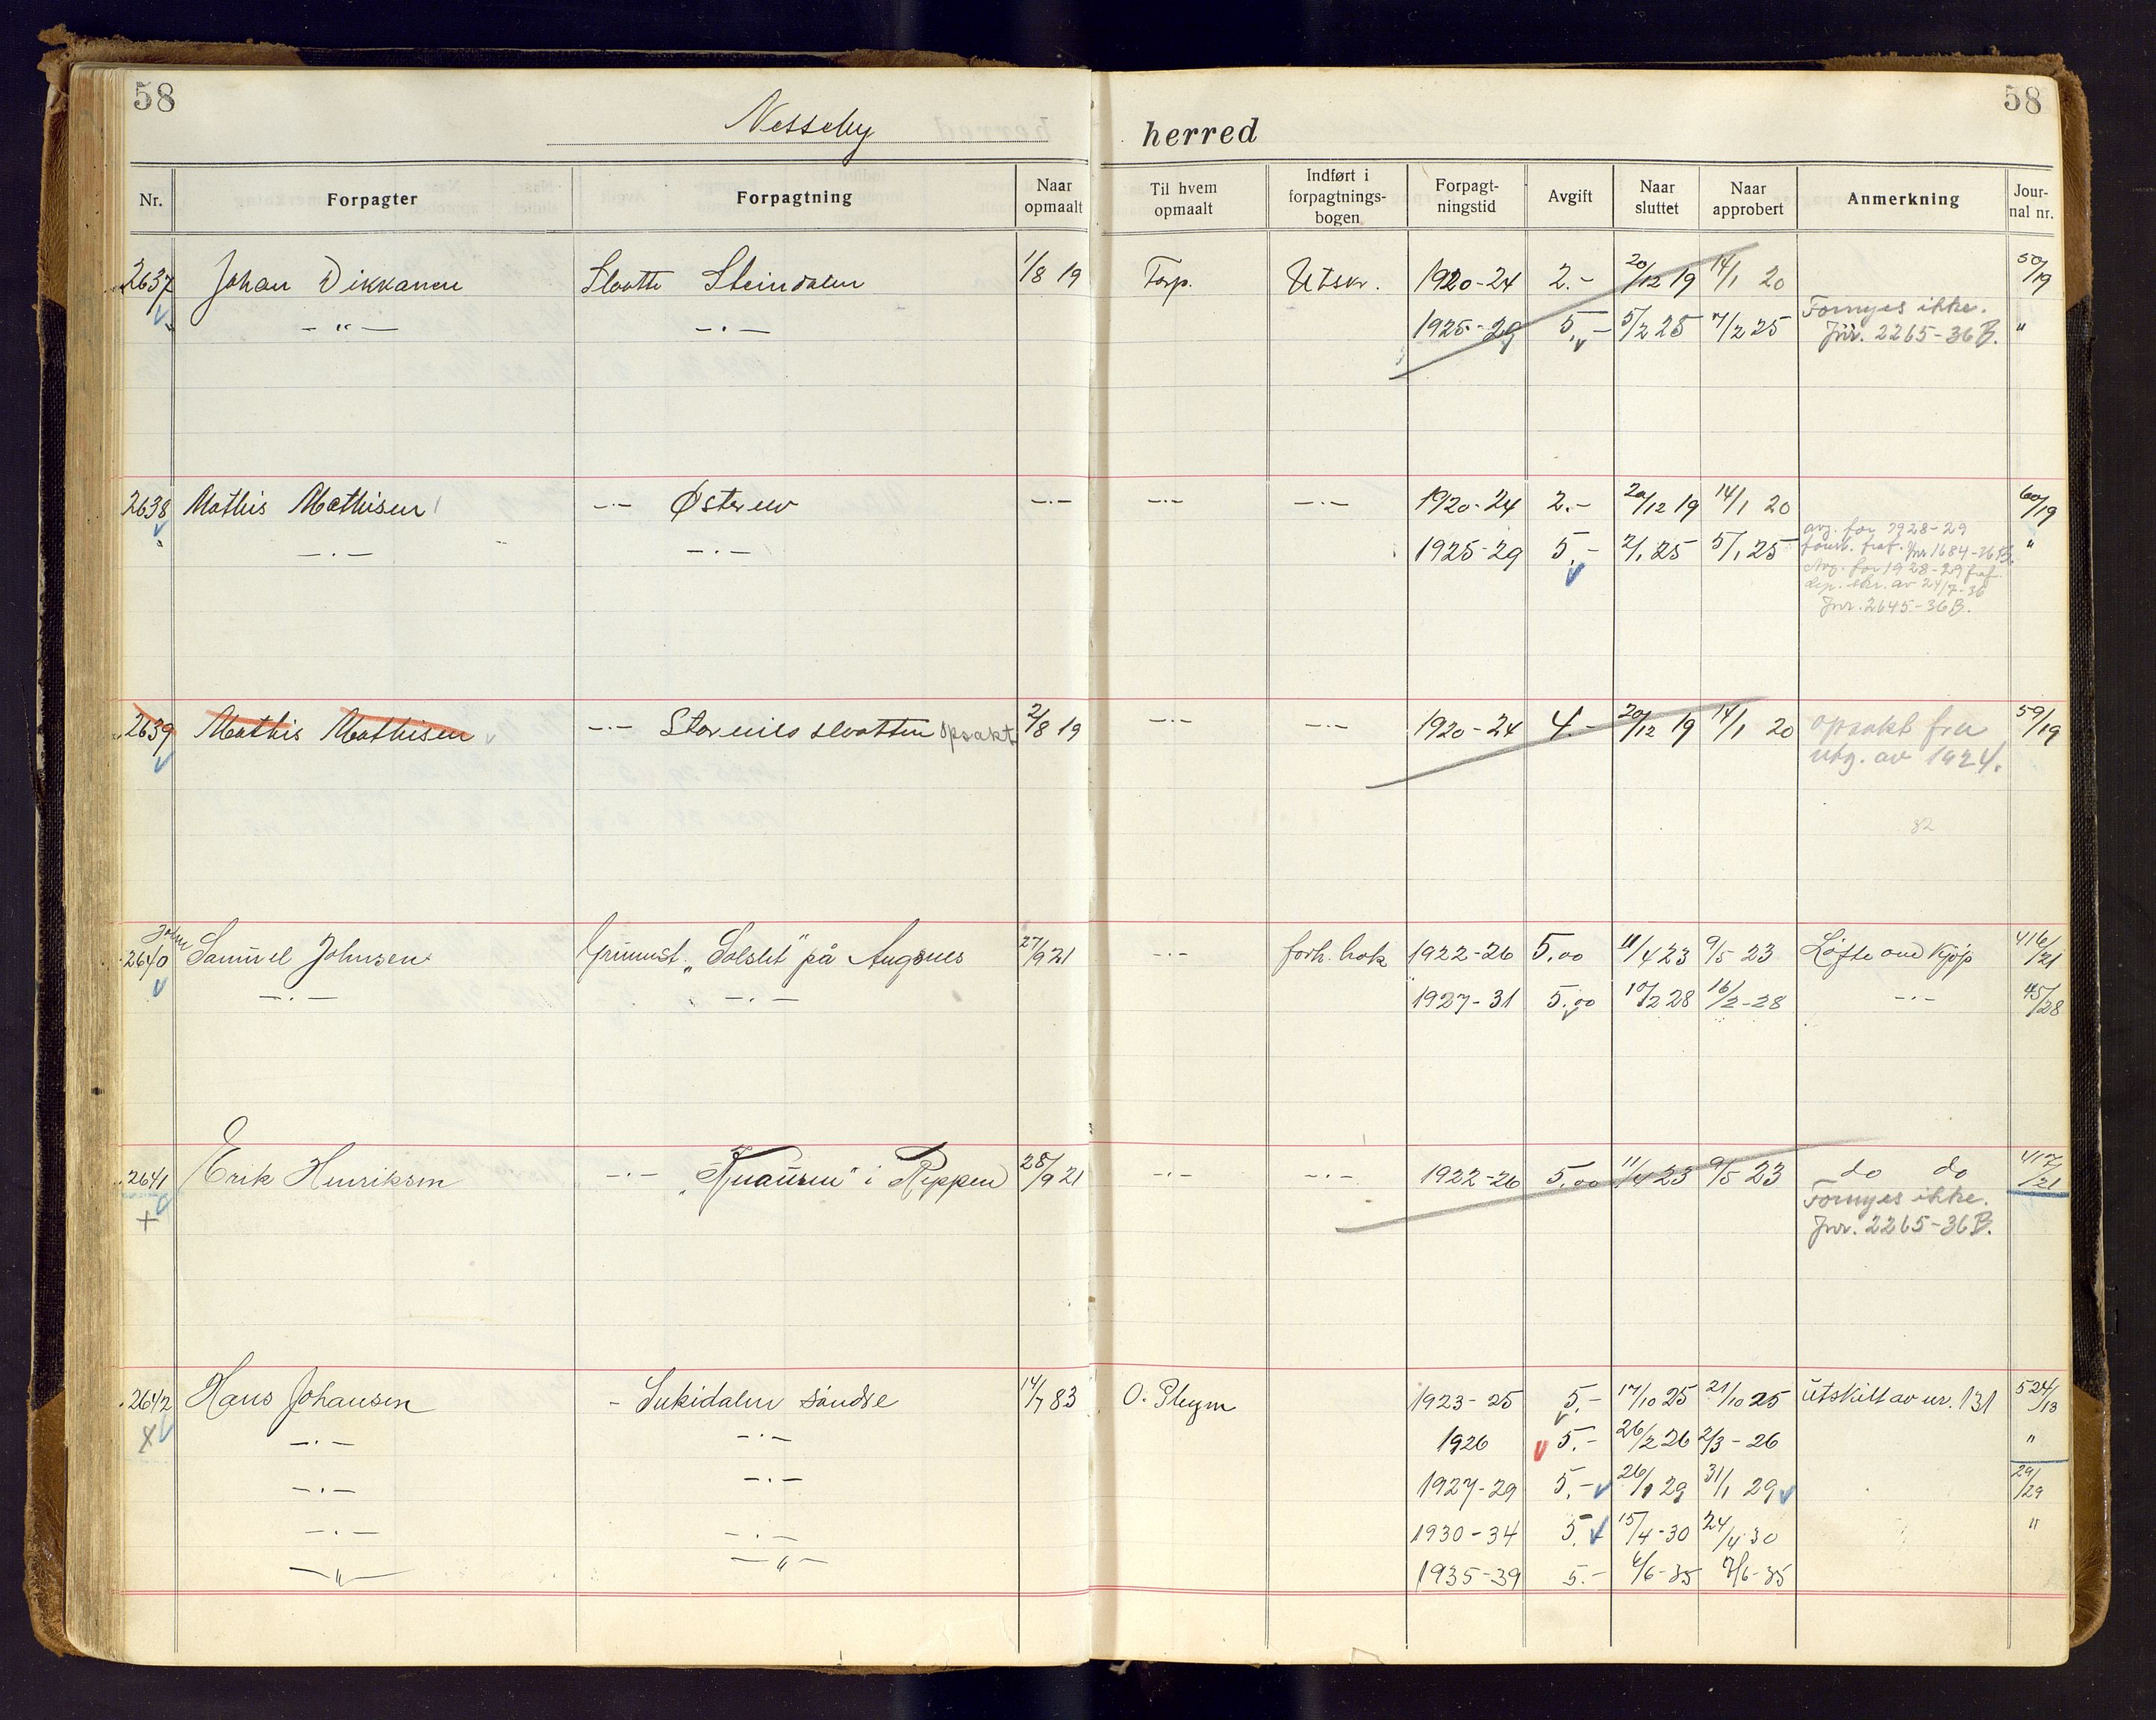 58
58
Nesseby herred
Nr. Forpagter Forpagtning Naar opmaalt Til hvem opmaalt Indført i forpagtnings-bogen Forpagt-ningstid Avgift Naar sluttet Naar approbert Anmerkning Jour-nal nr.
2637 Johan Dikkanen Slaatte Steindalen 1/8 19 Torp. Utskr. 1920-24 2.- 20/12 19 14/1 20 50/19
" -"- -.- 1925-29 5,- 5/2 25 7/2 25 Fornyes ikke. "
Jnr. 2265-36 B.
2638 Mathis Mathisen -.- Østereiv -.- -.- -.- 1920-24 2.- 20/12 19 14/1 20 60/19
" -.- -.- 1925-29 5,- 2/1 25 5/1 25 avg. for 1928-29 "
forsk. fraf. Jnr 1684-26 B.
Avg. for 1928-29 fraf.
dep. skr. av 24/7-36
Jnr. 2645-36 B.
2639 Mathis Mathisen -.- Storeilvslaatten opsakt 2/8 19 -.- -.- 1920-24 4.- 20/12 19 14/1 20 opsakt fra 59/19
utg. av 1924.
82
John
2640 Samuel Johnsen Grunnst. "Solslet" på Angsnes 27/9 21 -.- forh. bok 1922-26 5.00 11/4 23 9/5 23 Løfte om kjøp 416/21
-.- -.- 1927-31 5.00 10/2 28 16/2-28 -.- 45/28
2641 Erik Henriksen -.- "Knausen" i Reppen 28/9 21 -.- -.- 1922-26 5.00 11/4 23 9/5 23 do do 417/21
+ Fornyes ikke.
Jnr. 2265-36 B.
2642 Hans Johansen - Sukidalen søndre 14/7 83 O. Pleym 1923-25 5.- 17/10 25 21/10 25 utskilt av nr. 131 524/13
x -.- -.- 1926 5.- 26/2 26 2/3-26 "
-.- -.- 1927-29 5.- 26/1 29 31/1 29 29/29
-.- -.- 1930-34 5. 15/4-30 24/4 30 "
-"- -"- 1935-39 5.- 4/6-35 7/6-35